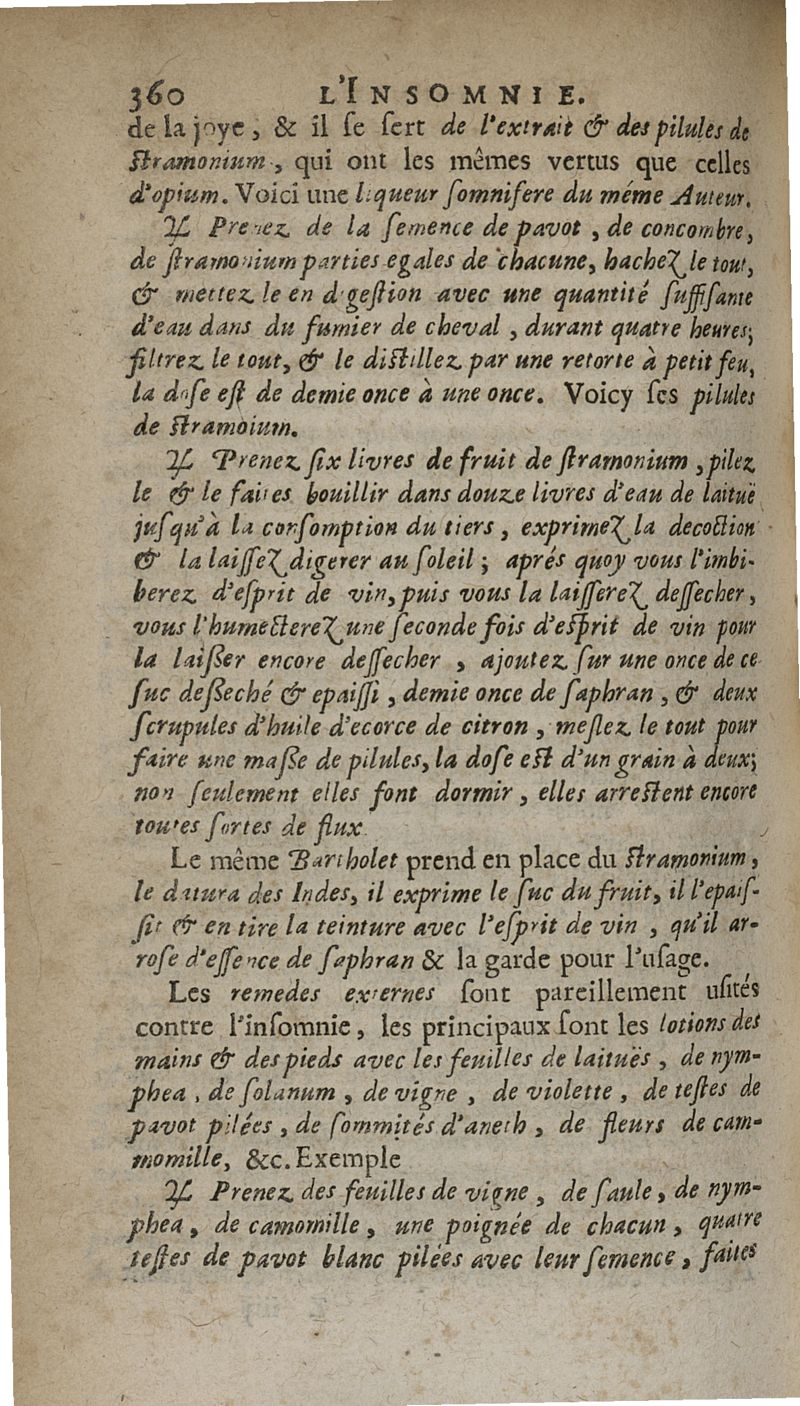 360 L'INSOMNIE.
de la joye, & il ſe ſert de l'extrait & des pilules de
ſtramonium, qui ont les mêmes vertus que celles
d'opium. Voici une liqueur ſomnifere du méme Auteur.
♃ Prenez de la ſemence de pavot, de concombre,
de ſtramonium parties egales de chacune, hachez le tout,
& mettez le en digeſtion avec une quantité ſuffiſante
d'eau dans du fumier de cheval, durant quatre heures;
filtrez le tout, & le diſtillez par une retorte à petit feu,
la doſe eſt de demie once à une once. Voicy ſes pilules
de ſtramoium.
♃ Prenez ſix livres de fruit de ſtramonium, pilez
le & le faites bouillir dans douze livres d'eau de laituë
juſqu'à la conſomption du tiers, exprimez la decoction
& la laiſſez digerer au ſoleil; aprés quoy vous l'imbi-
berez d'eſprit de vin, puis vous la laiſſerez deſſecher,
vous l'humecterez une ſeconde fois d'eſprit de vin pour
la laiſſer encore deſſecher, ajoutez ſur une once de ce
ſuc deſſeché & epaiſſi, demie once de ſaphran, & deux
ſcrupules d'huile d'ecorce de citron, meſlez le tout pour
faire une maſſe de pilules, la doſe eſt d'un grain à deux;
non ſeulement elles font dormir, elles arreſtent encore
toutes ſortes de flux.
Le même Bartholet prend en place du ſtramonium,
le datura des Indes, il exprime le ſuc du fruit, il l'epaiſ-
ſit & en tire la teinture avec l'eſprit de vin, qu'il ar-
roſe d'eſſence de ſaphran & la garde pour l'uſage.
Les remedes externes ſont pareillement uſités
contre l'inſomnie, les principaux ſont les lotions des
mains & des pieds avec les feuilles de laituës, de nym-
phea, de ſolanum, de vigne, de violette, de teſtes de
pavot pilées, de ſommités d'aneth, de fleurs de cam-
momille, &c. Exemple
♃ Prenez des feuilles de vigne, de ſaule, de nym-
phea, de camomille, une poignée de chacun, quatre
teſtes de pavot blanc pilées avec leur ſemence, faites